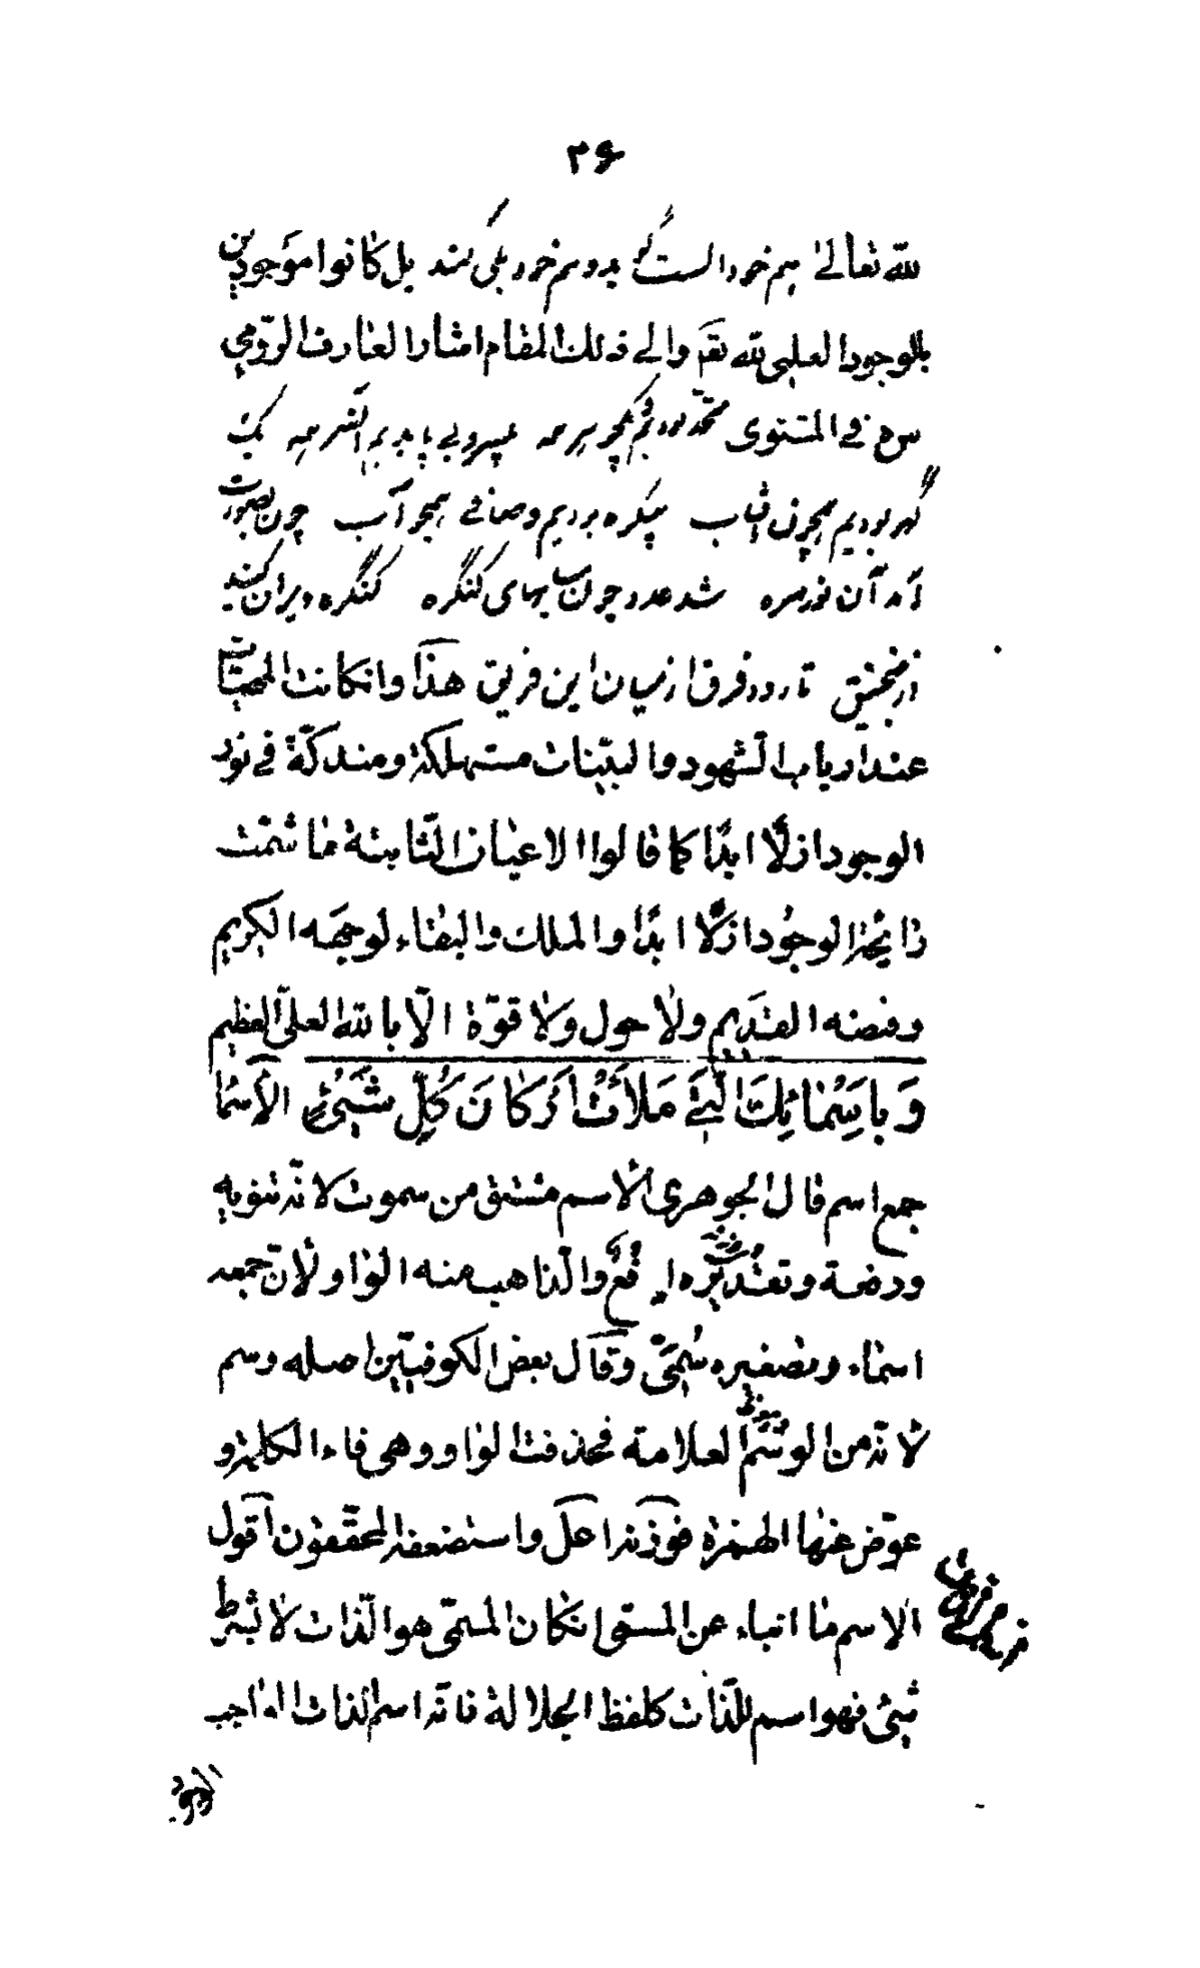 ۳۶
لله تعالى هم خود الست گوید و هم خود بلی کند بل کانوا موجودین
بالوجود العلمی لله تعم والی ذلك المقام اشار العارف الرومی
س ه فی المثنوی متحد بودیم همچو سر همه بی سر و بی پا بدیم آنسر همه یک
گهر بودیم همچون آفتاب بیگره بودیم و صافی همچو آب چون بصورت
آمد آن نور سره شد عدد چون سایهای کنگره کنگره ویران کنید
از منجنیق تا رود فرق از میان این فریق هذا وان کانت المهیات
عند ارباب الشهود والبینات مستهلکة ومندکة فی نور
الوجود ازلًا ابدًا کما قالوا الاعیان الثابتة ما شمت
رائحة الوجود ازلًا ابدًا والملك والبقاء لوجهه الکریم
وفیضه القدیم ولا حول ولا قوة الّا بالله العلیّ العظیم
وَبِاَسْمائِكَ الَّتی مَلَأَتْ اَرْکانَ کُلِّ شَیْئٍ الاسماء
جمع اسم قال الجوهری الاسم مشتق من سموت لانه تنویه
ورفعة وتقدیره اِفعٌ والذاهب منه الواو لانّ جمعه
اسماء وتصغیره سُمَیّ وقال بعض الکوفیین اصله وسم
لانه من الوسم العلامة فحذفت الواو وهی فاء الکلمة و
عوّض عنها الهمزة فوزنه اعل واستضعفه المحققون اقول
الاسم ما انباء عن المسمی انکان المسمّی هو الذات لا بشرط
شیئ فهو اسم للذات کلفظ الجلالة فانه اسم لذات الواجب
الوجود